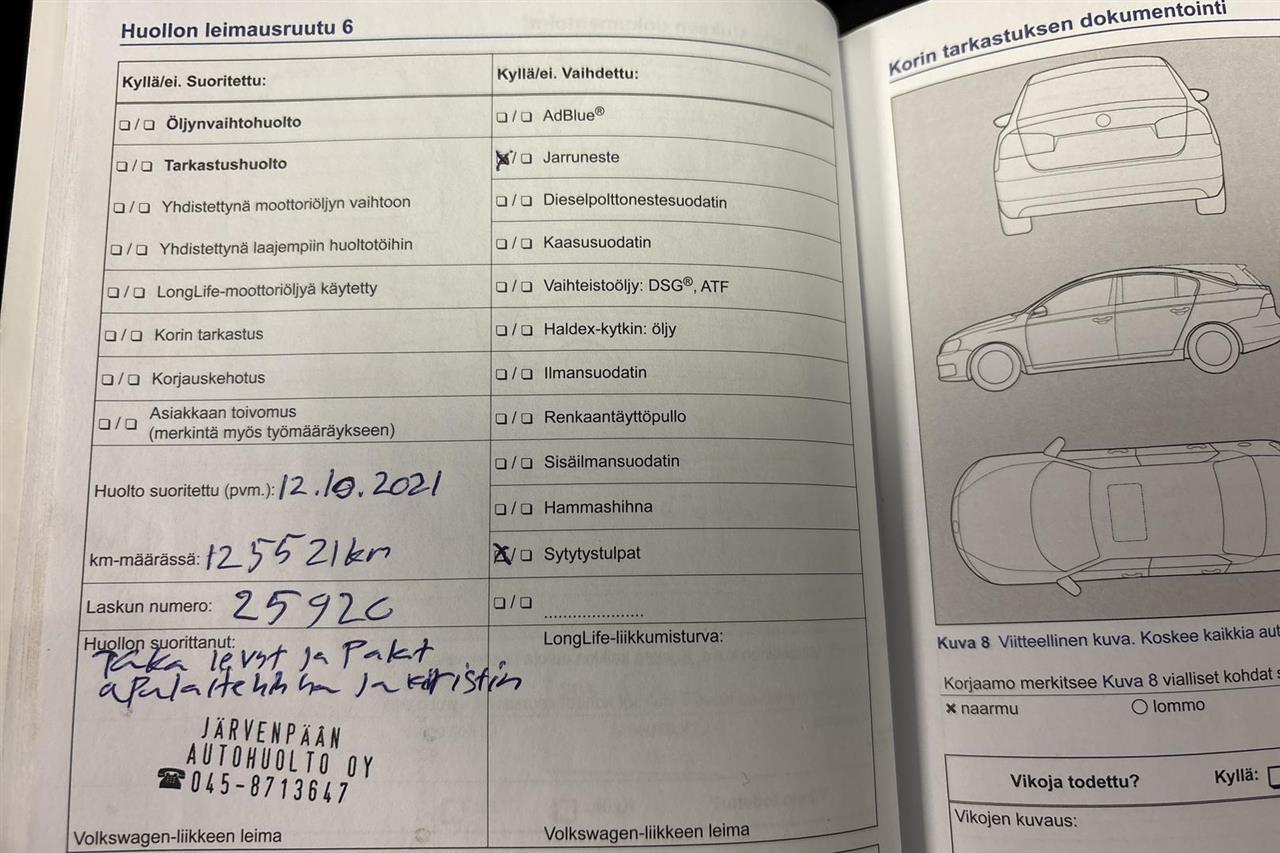 Huollon leimausruutu 6
Kyllä/ei. Suoritettu:
☐ / ☐ Öljynvaihtohuolto
☐ / ☐ Tarkastushuolto
☐ / ☐ Yhdistettynä moottoriöljyn vaihtoon
☐ / ☐ Yhdistettynä laajempiin huoltotöihin
☐ / ☐ LongLife-moottoriöljyä käytetty
☐ / ☐ Korin tarkastus
☐ / ☐ Korjauskehotus
☐ / ☐ Asiakkaan toivomus
(merkintä myös työmääräykseen)
Huolto suoritettu (pvm.): 12.10.2021
km-määrässä: 125521km
Laskun numero: 25920
Huollon suorittanut:
Taka levyt ja Palat
apulaitehihna ja kiristin
JÄRVENPÄÄN
AUTOHUOLTO OY
☎045-8713647
Volkswagen-liikkeen leima
Kyllä/ei. Vaihdettu:
☐ / ☐ AdBlue®
☒ / ☐ Jarruneste
☐ / ☐ Dieselpolttonestesuodatin
☐ / ☐ Kaasusuodatin
☐ / ☐ Vaihteistoöljy: DSG®, ATF
☐ / ☐ Haldex-kytkin: öljy
☐ / ☐ Ilmansuodatin
☐ / ☐ Renkaantäyttöpullo
☐ / ☐ Sisäilmansuodatin
☐ / ☐ Hammashihna
☒ / ☐ Sytytystulpat
☐ / ☐ ....................
LongLife-liikkumisturva:
Volkswagen-liikkeen leima
Korin tarkastuksen dokumentointi
Kuva 8 Viitteellinen kuva. Koskee kaikkia aut
Korjaamo merkitsee Kuva 8 vialliset kohdat s
× naarmu
○ lommo
Vikoja todettu?
Kyllä: ☐
Vikojen kuvaus: